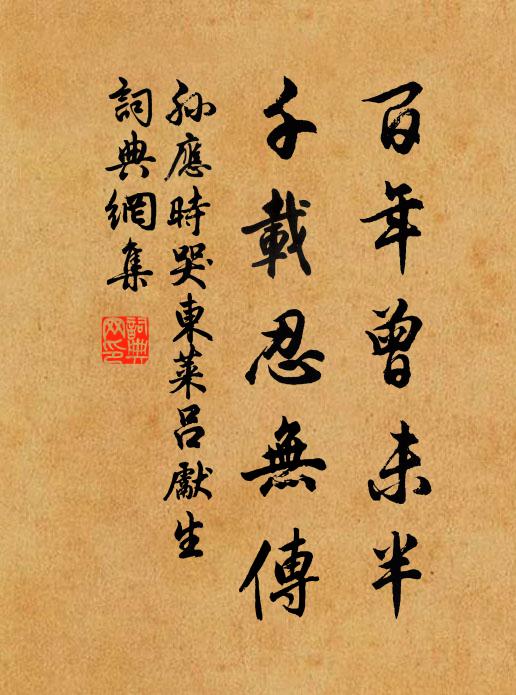 百年曾未半
千載忍無傳
孫應時哭東萊呂獻生
詞典網集
詞典网印